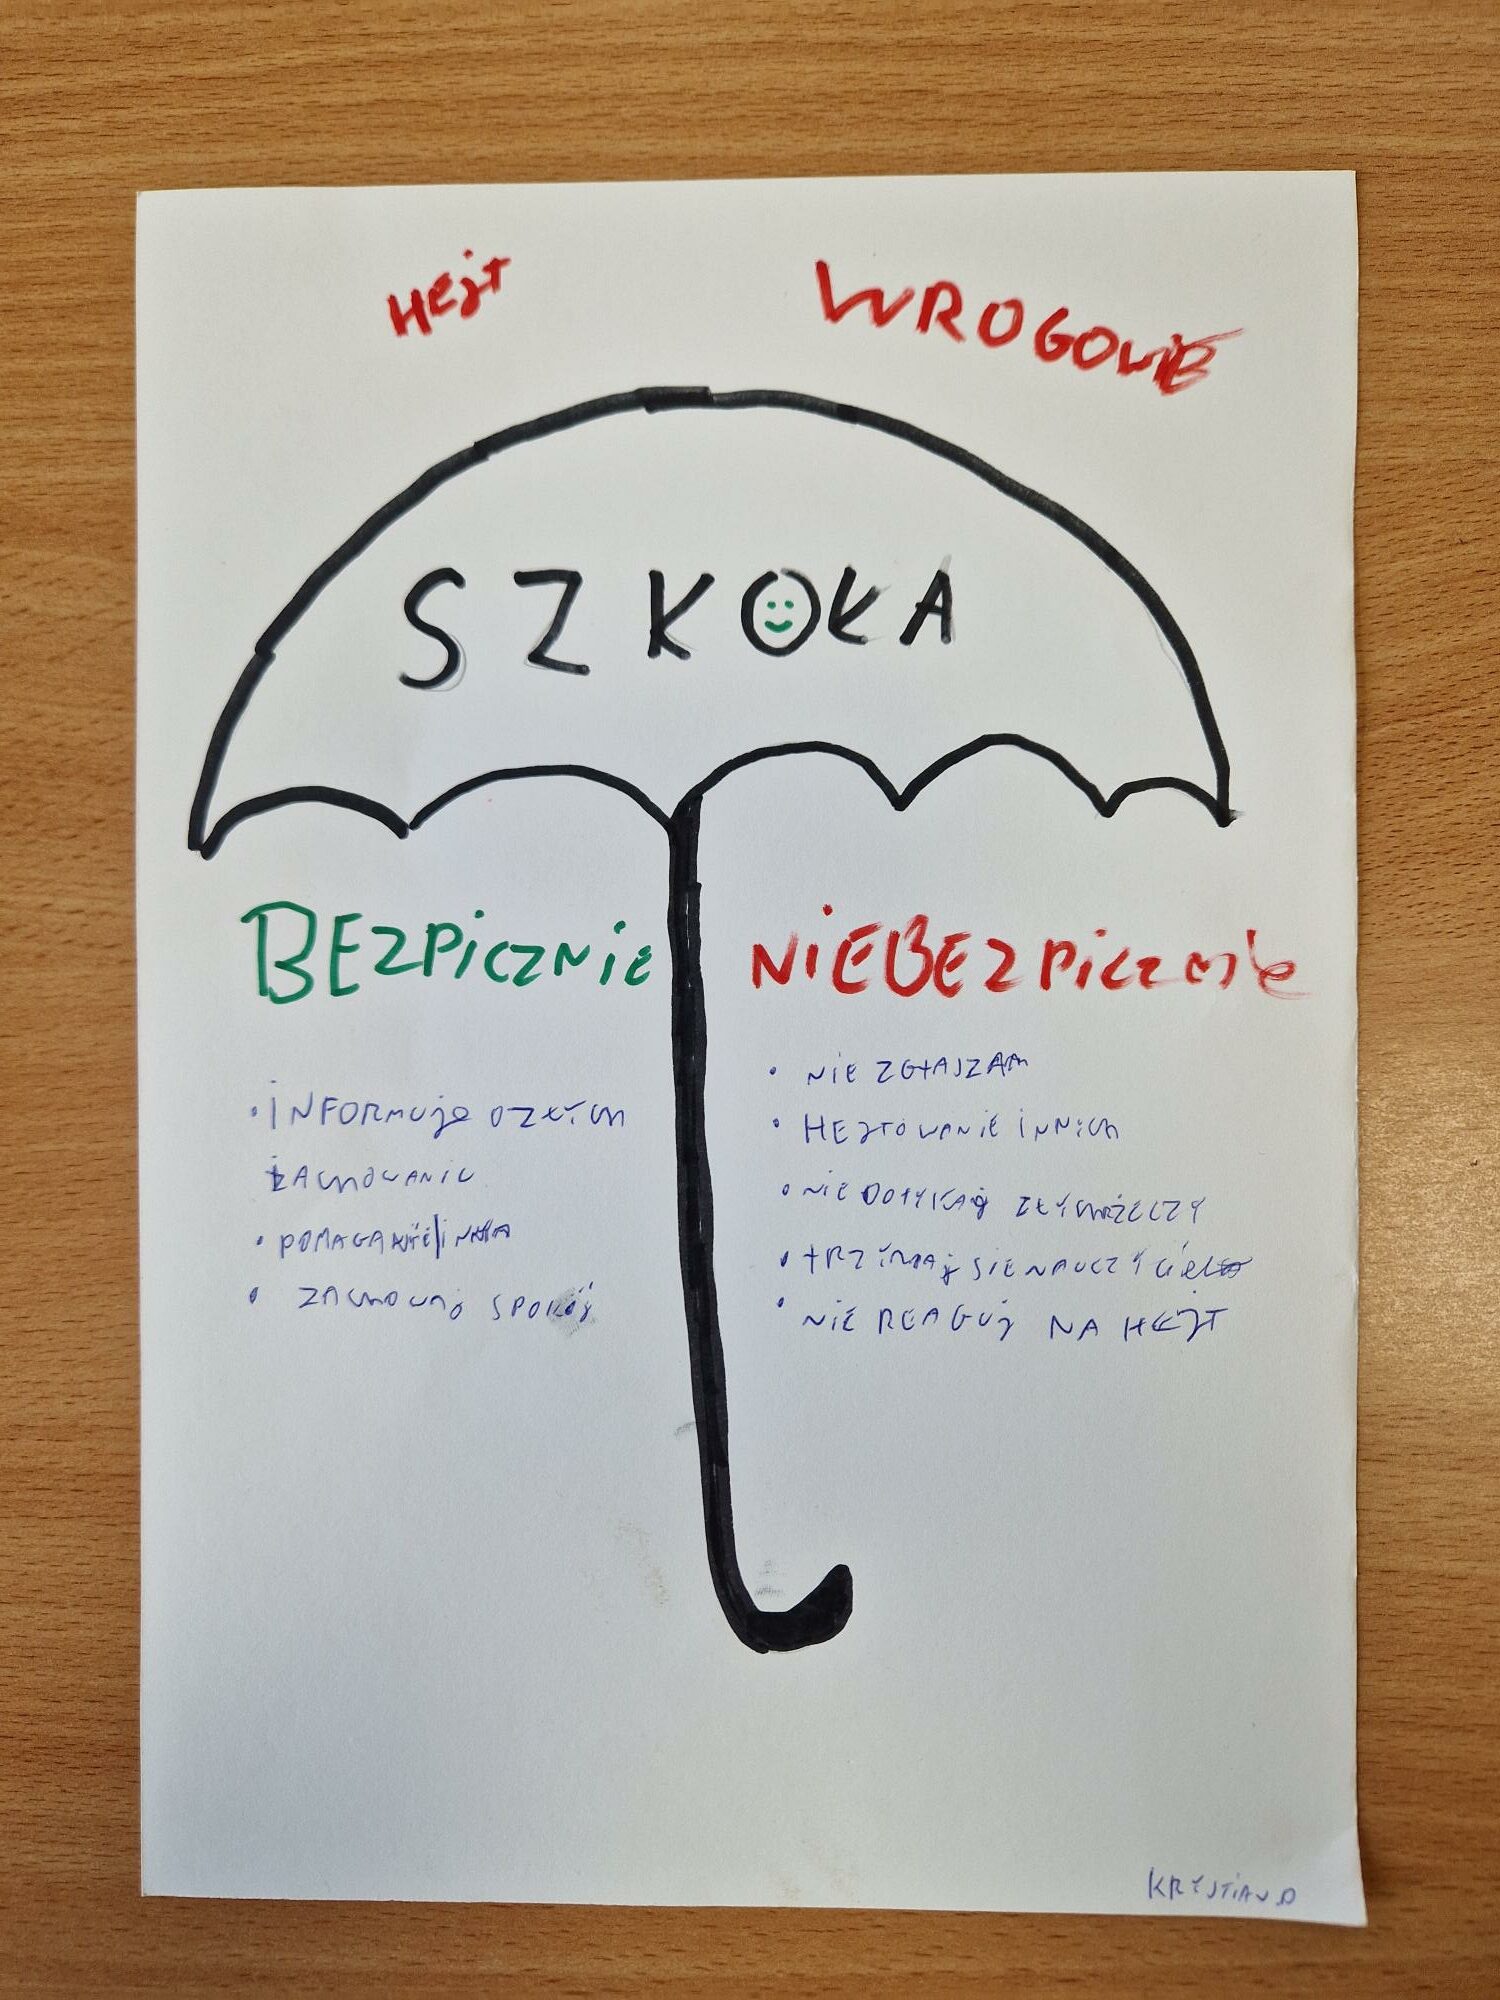 HEJT
WROGOWIE
SZKOŁA
BEZPICZNIE
NIEBEZPICZNIE
• INFORMUJE O ZŁYCH
ZACHOWANIU
• POMAGANIE
• ZACHOWAJ SPOKÓJ
• NIE ZGŁASZAM
• HEJTOWANIE INNICH
• NIE DOTYKAJ ZŁYCH RZECZY
• TRZYMAJ SIE NAUCZYCIEL
• NIE REAGUJ NA HEJT
KRYSTIAN D